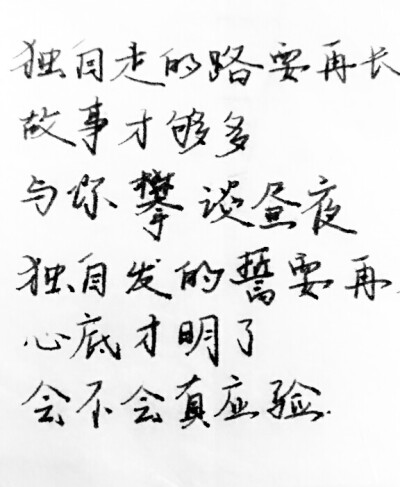 独自走的路要再长
故事才够多
与你攀谈昼夜
独自发的誓要再
心底才明了
会不会真应验.